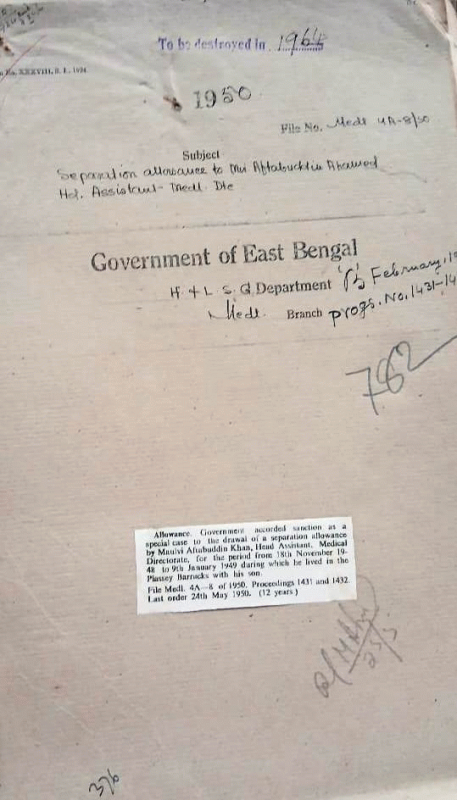 To be destroyed in 1964
No. XXXVIII, B. I., 1934.
1950
File No. Medl 4A-8/50
Subject
Separation allowance to Mvi Aftabuddin Ahamed
Hd. Assistant- Medl. Dte
Government of East Bengal
H & L S. G. Department 'B' February, 19
Medl. Branch progs. No. 1431-14
782
Allowance. Government accorded sanction as a
special case to the drawal of a separation allowance
by Maulvi Aftabuddin Khan, Head Assistant, Medical
Directorate, for the period from 18th November 19-
48 to 9th January 1949 during which he lived in the
Plassey Barracks with his son.
File Medl. 4A—8 of 1950. Proceedings 1431 and 1432.
Last order 24th May 1950. (12 years)
25/5